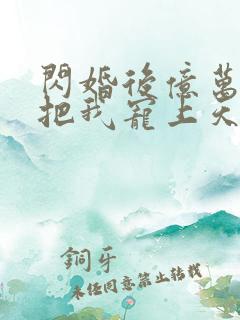 閃婚後億萬
把我寵上天
銅牙
未經同意禁止轉載